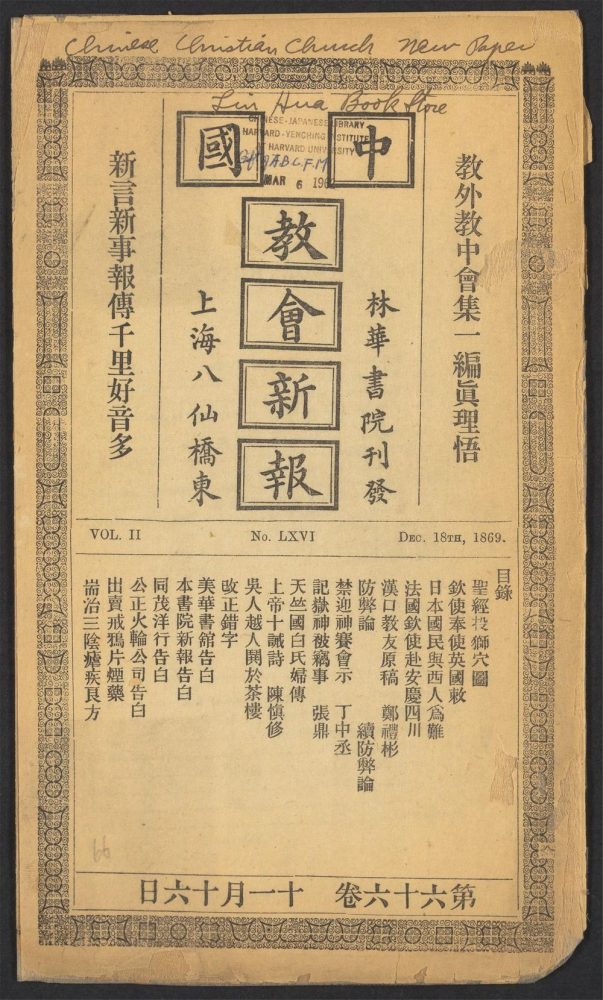 Chinese Christian Church New Paper
Lin Hua Book Store
CHINESE-JAPANESE LIBRARY
HARVARD-YENCHING INSTITUTE
HARVARD UNIVERSITY
A.B.C.F.M
MAR 6
中國
教會新報
教外教中會集一編眞理悟
林華書院刊發
上海八仙橋東
新言新事報傳千里好音多
VOL. II No. LXVI DEC. 18TH, 1869.
目錄
聖經投獅穴圖
欽使奉使英國敕
日本國民與西人爲難
法國欽使赴安慶四川
漢口教友原稿 鄭禮彬
防弊論 續防弊論
禁迎神賽會示 丁中丞
記嶽神被竊事 張鼎
天竺國白氏婦傳
上帝十誡詩 陳愼修
吳人越人鬨於茶樓
改正錯字
美華書館告白
本書院新報告白
同茂洋行告白
公正火輪公司告白
出賣戒鴉片煙藥
耑治三陰瘧疾良方
第六十六卷 十一月十六日
66